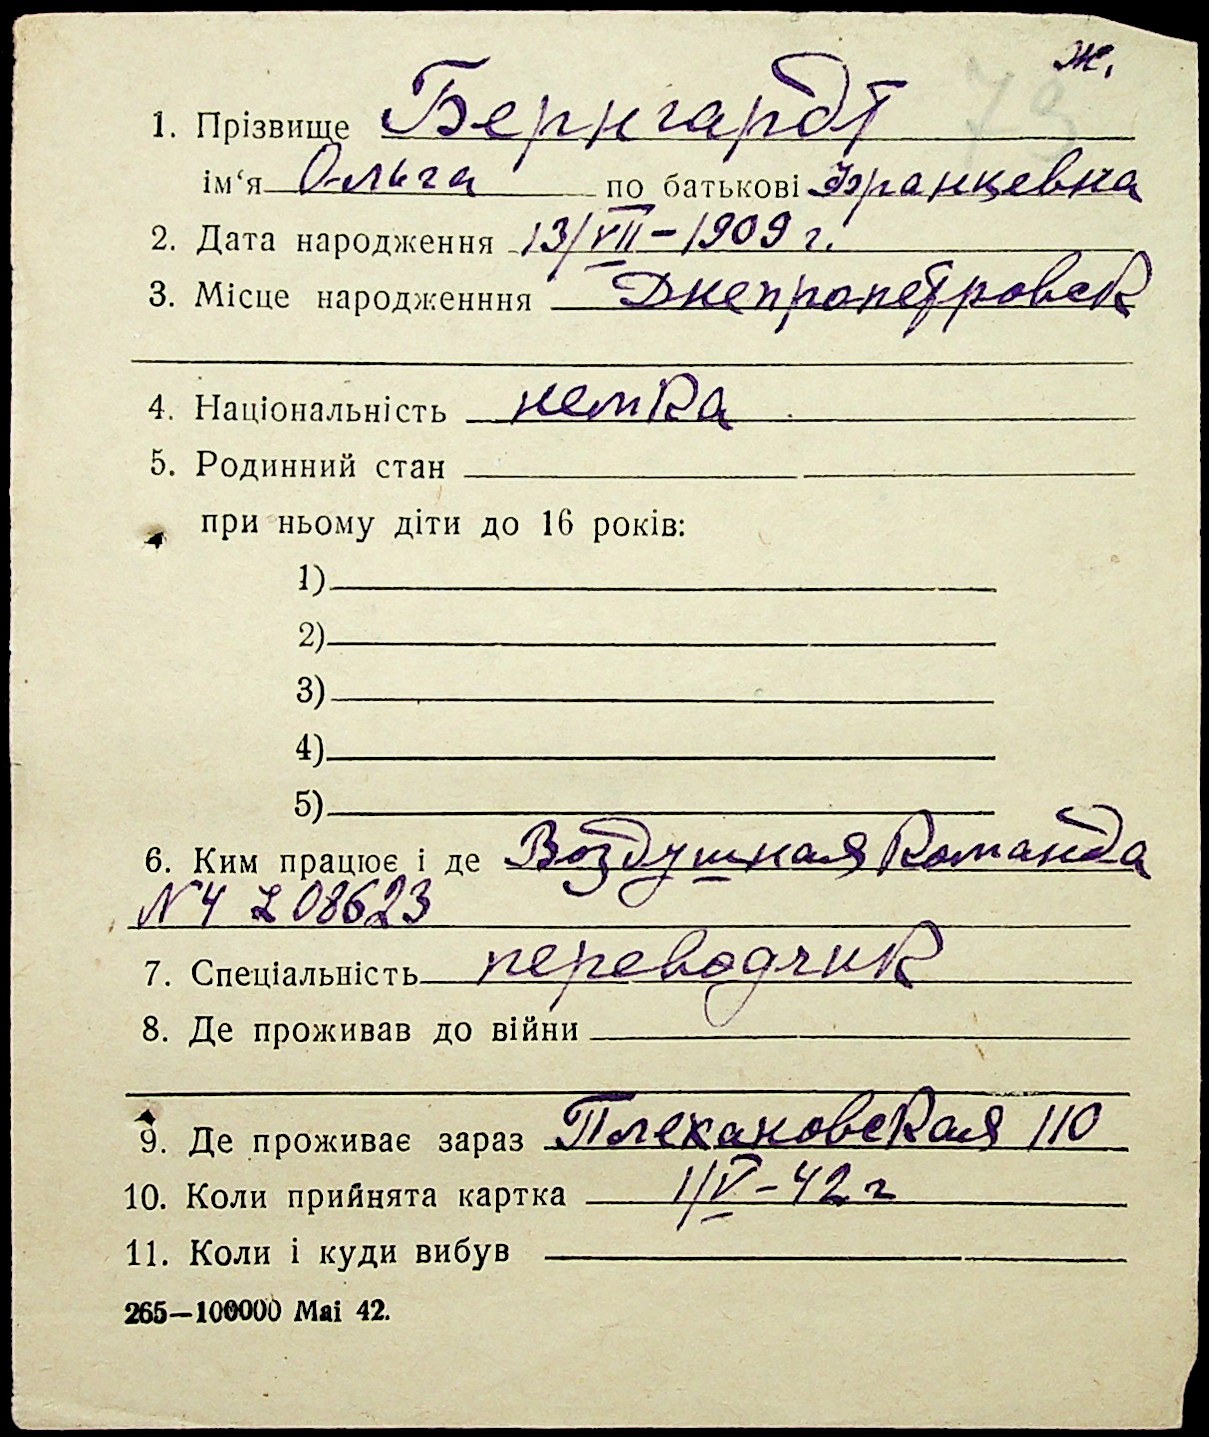 ж.
73
1. Прізвище Бернгардт
ім‘я Ольга по батькові Францевна
2. Дата народження 13/VII-1909 г.
3. Місце народженння Днепропетровск
4. Національність немка
5. Родинний стан
при ньому діти до 16 років:
1)
2)
3)
4)
5)
6. Ким працює і де Воздушная команда
N4 L 08623
7. Спеціальність переводчик
8. Де проживав до війни
9. Де проживає зараз Плехановская 110
10. Коли прийнята картка 1/V-42 г
11. Коли і куди вибув
265—100000 Mai 42.